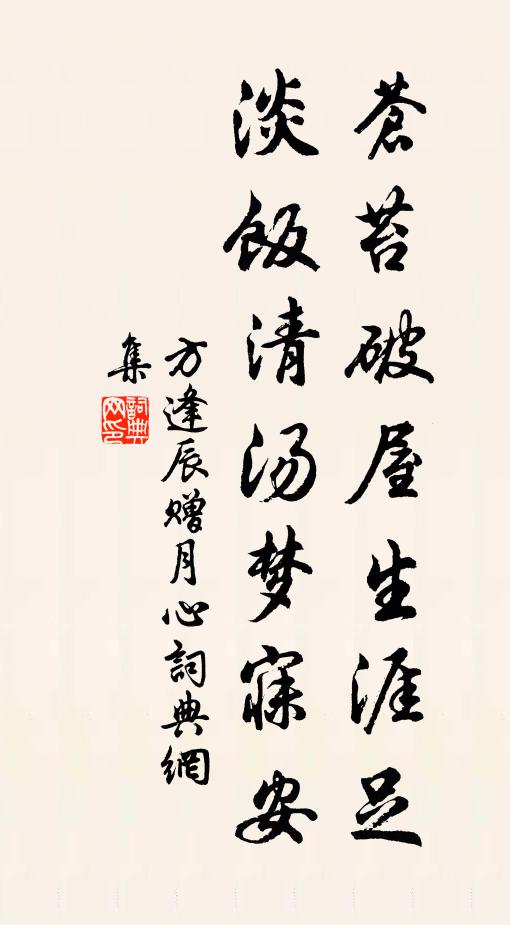 蒼苔破屋生涯足
淡飯清汤梦寐安
方逢辰赠月心詞典網
集
詞典网印